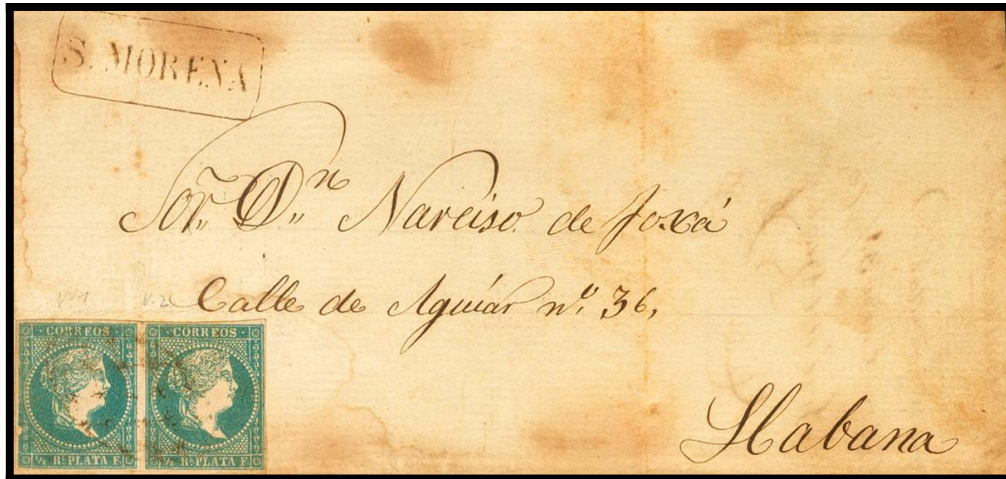 S. MORENA
Sor. Dn. Narciso de Foxá
Calle de Aguiár nº. 36,
Habana
CORREOS CORREOS
½ Rl. PLATA F. ½ Rl. PLATA F.